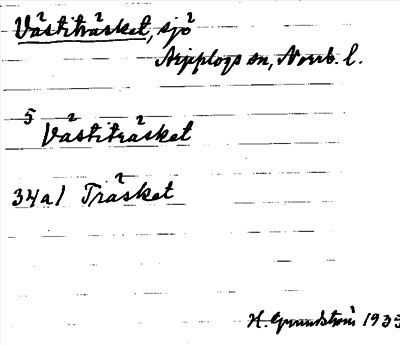 Västiträsket, sjö
Arjeplogs sn, Norrb. l.
5 Västiträsket
34a/ Träsket
H. Grundström 1935